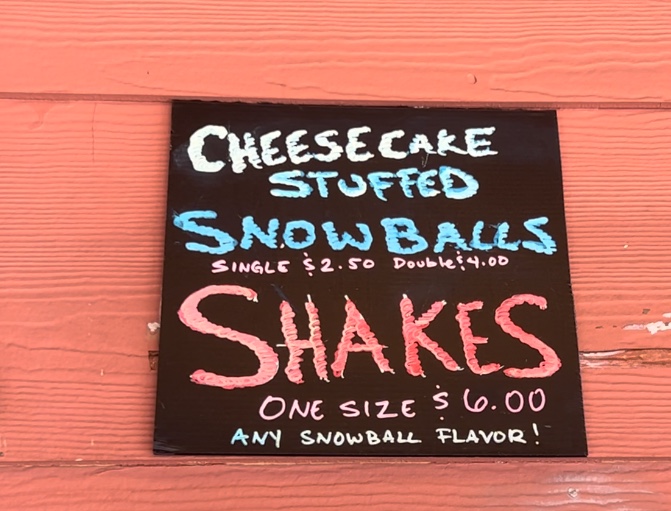 CHEESECAKE
STUFFED
SNOWBALLS
SINGLE $2.50 Double $4.00
SHAKES
ONE SIZE $6.00
ANY SNOWBALL FLAVOR!